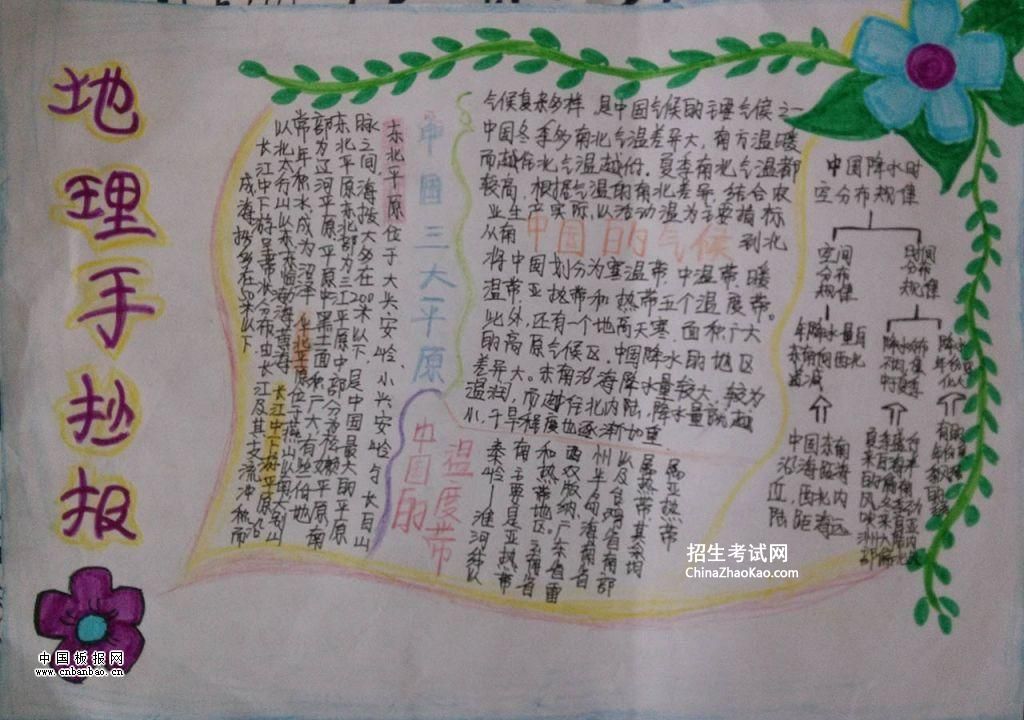 地理手抄报
中国三大平原
东北平原位于大兴安岭、小兴安岭与长白山
脉之间,海拔大多在200米以下,是中国最大的平原
东北平原东北部为三江平原中部分为松嫩平原南
部为辽河平原。平原中黑土面积广大,有些份地
常年积水,成为沼泽 华北平原位于燕山以南大别山
以北太行山以东 长江中下游平原沿
长江中下游呈带状分布由长江及其支流冲积而
成,海拔多在50米以下
气候复杂多样 是中国气候的主要气候之一
中国冬季多南北气温差异大,南方温暖
而越往北气温越低。夏季南北气温都
较高,根据气温的南北差异,结合农
业生产实际,以活动温为主要指标
中国的气候
从南到北
将中国划分为寒温带、中温带、暖
温带、亚热带和热带五个温度带。
此外,还有一个地高天寒、面积广大
的高原气候区。中国降水的地区
差异大。东南沿海降水量较大,较为
温润,而越往西北内陆,降水量就越
小,干旱程度也逐渐加重
中国的温度带
属亚热带
属热带、其余均
以及台湾省南部
州半岛海南省
西双版纳广东省雷
和热带地区云南省
南主要是亚热带
秦岭—淮河线以
中国降水时
空分布规律
空间
分布
规律
时间
分布
规律
年降水量自
东南向西北
递减
中国东南
沿海临海
,西北内
陆距海远
招生考试网
ChinaZhaoKao.com
中国板报网
www.cnbanbao.cn